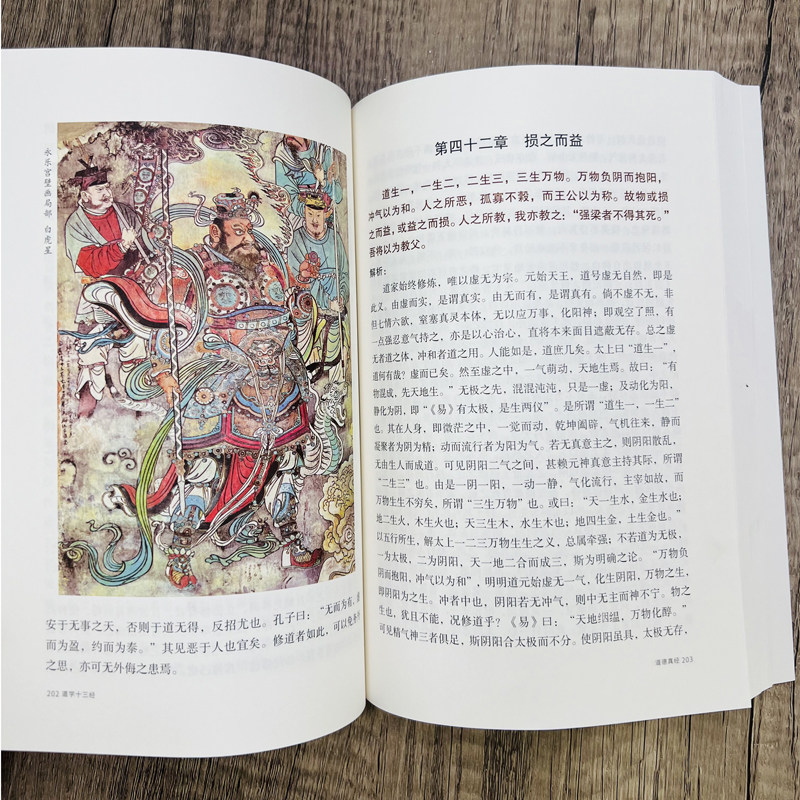 永乐宫壁画局部 白虎星
安于无事之天，否则于道无得，反招尤也。孔子曰：“无而为有，虚
而为盈，约而为泰。”其见恶于人也宜矣。修道者如此，可以免外
之思，亦可无外侮之患焉。
202 道学十三经
第四十二章 损之而益
道生一，一生二，二生三，三生万物。万物负阴而抱阳，
冲气以为和。人之所恶，孤寡不穀，而王公以为称。故物或损
之而益，或益之而损。人之所教，我亦教之：“强梁者不得其死。”
吾将以为教父。
解析：
道家始终修炼，唯以虚无为宗。元始天王，道号虚无自然，即是
此义。由虚而实，是谓真实。由无而有，是谓真有。倘不虚不无，非
但七情六欲，窒塞真灵本体，无以应万事，化阳神；即观空了照，有
一点强忍意气持之，亦是以心治心，直将本来面目遮蔽无存。总之虚
无者道之体，冲和者道之用。人能如是，道庶几矣。太上曰“道生一”，
道何有哉？虚而已矣。然至虚之中，一气萌动，天地生焉。故曰：“有
物混成，先天地生。”无极之先，混混沌沌，只是一虚；及动化为阳，
静化为阴，即“《易》有太极，是生两仪”。是所谓“道生一，一生二”
也。其在人身，即微茫之中，一觉而动，乾坤阖辟，气机往来，静而
凝聚者为阴为精；动而流行者为阳为气。若无真意主之，则阴阳散乱，
无由生人而成道。可见阴阳二气之间，甚赖元神真意主持其际，所谓
“二生三”也。由是一阴一阳，一动一静，气化流行，主宰如故，而
万物生生不穷矣，所谓“三生万物”也。或曰：“天一生水，金生水也；
地二生火，木生火也；天三生木，水生木也；地四生金，土生金也。”
以五行所生，解太上一二三万物生生之义，总属牵强；不若道为无极，
一为太极，二为阴阳，天一地二合而成三，斯为明确之论。“万物负
阴而抱阳，冲气以为和”，明明道元始虚无一气，化生阴阳，万物之生，
即阴阳为之生。冲者中也，阴阳若无冲气，则中无主而神不宁。物之
生也，犹且不能，况修道乎？《易》曰：“天地绍缊，万物化醇。”
可见精气神三者俱足，斯阴阳合太极而不分。使阴阳虽具，太极无存，
道德真经 203